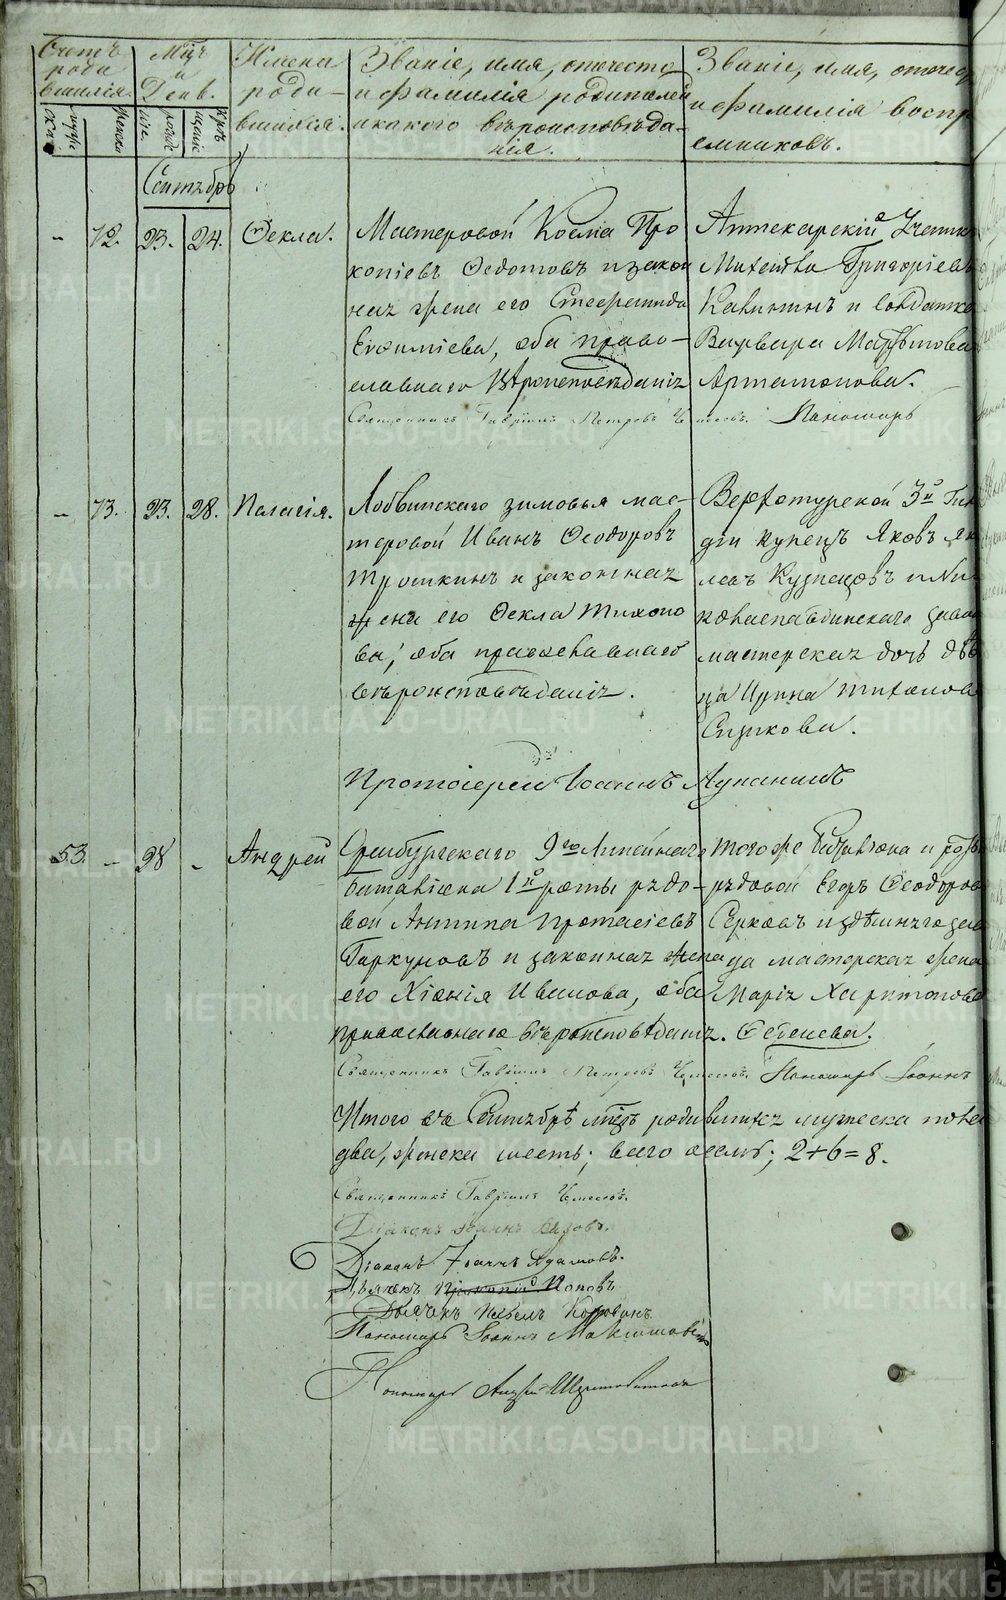 Счетъ родившихся. Мцъ и День. Имена родившихся. Званіе, имя, отчество и фамилія родителей и какого вѣроисповѣданія. Званіе, имя, отчес и фамилія воспріемниковъ.
Сентябрь
- 72. 23. 24. Ѳекла.
Мастеровой Косма Про
копіевъ Ѳедотовъ и закон
ная жена его
Евѳиміева, оба право-
славнаго вѣроисповѣданія
Аптекарскій Ученик
Григоріевъ
и солдатка
Варвара
Артамонова.
Священникъ Гавріилъ Петровъ Пономарь
- 73. 23. 28. Пелагія.
Лобвинскаго зимовья мас-
теровой Иванъ Ѳеодоровъ
Трошкинъ и законная
жена его Ѳекла Тихоно
ва, оба православнаго
вѣроисповѣданія.
Верхотурской 3й Гиль
діи купецъ Яковъ Як
левъ Кузнецовъ и Ни
колаепавдинскаго заво
мастерская дочь дѣв
ца Ирина Тихонов
Протоіерей Іоаннъ
53. - 28 - Андрей
Оренбургскаго 9го Линейнаго
баталіона 1й роты рядо-
вой Антипа Протасіевъ
Гаркуновъ и законная жена
его Хіонія Иванова, оба
православнаго вѣроисповѣданія.
тогоже Баталіона и роты
рядовой Егоръ Ѳеодоров
и здѣшняго заво
да мастерская жена
Марія Харитонова
Священникъ Гавріилъ Петровъ Пономарь Іоаннъ
Итого въ Сентябрѣ мцѣ родившихся мужеска пола
два, женска шесть; всего осемь; 2+6=8.
Священникъ Гавріилъ
Діаконъ Іоаннъ
Діаконъ Іоаннъ Адамовъ.
Дьячекъ Прокопій Поповъ
Дьячекъ Павелъ Коровинъ
Пономарь Іоаннъ
Пономарь Андрей
METRIKI.GASO-URAL.RU